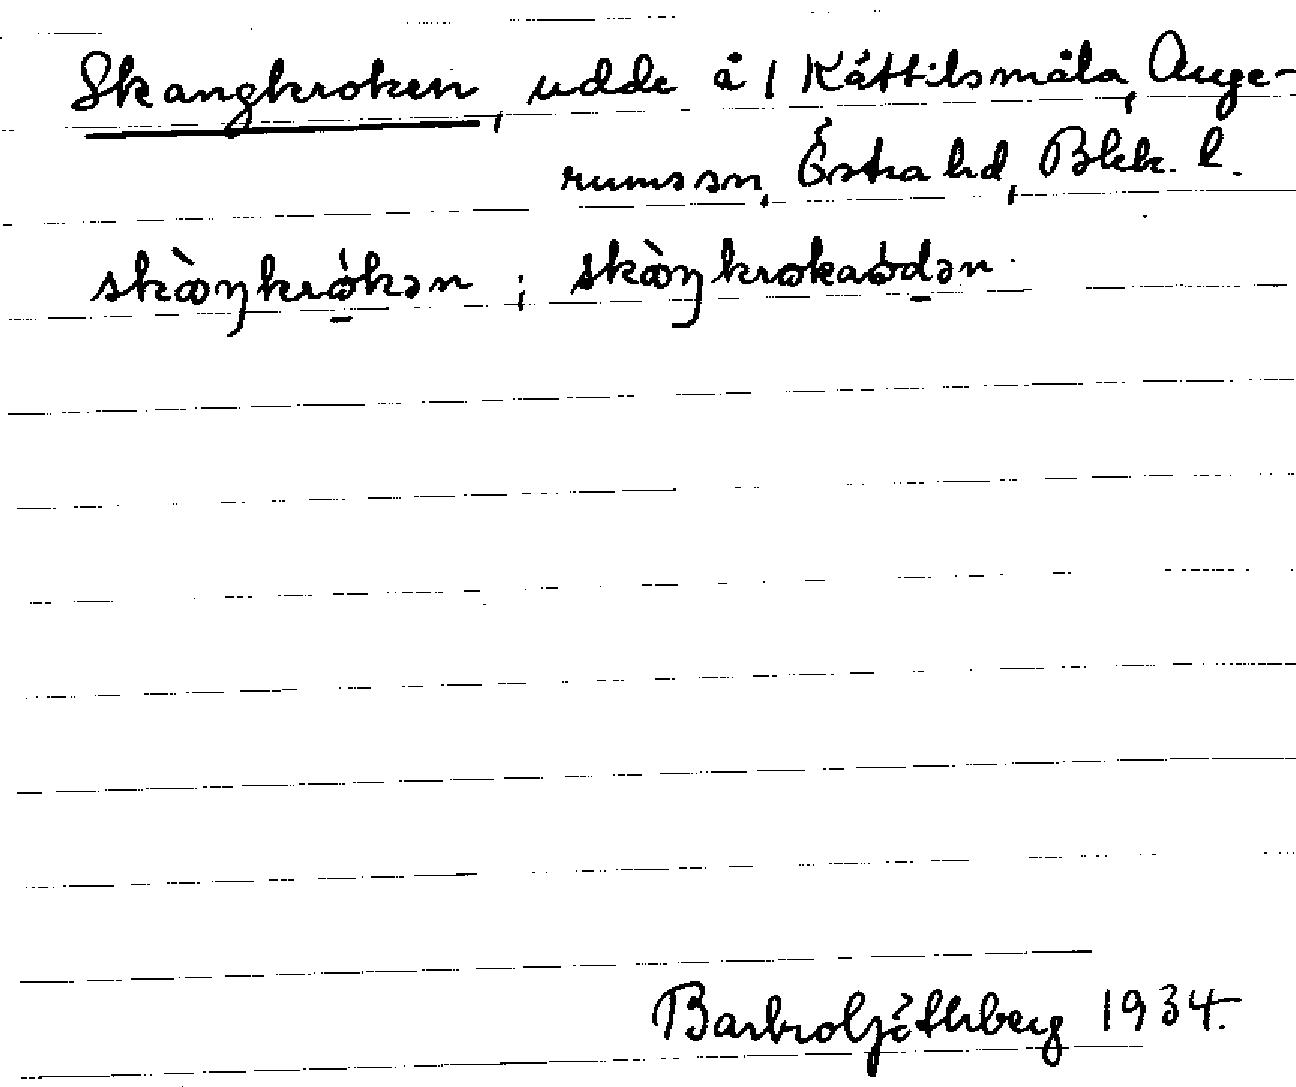 Skangkroken, udde å 1 Kättilsmåla, Auge-
rums sn, Östra hd, Blek. l.
skàŋkrókən ; skàŋkrokaódən
Barbro Göthberg 1934.